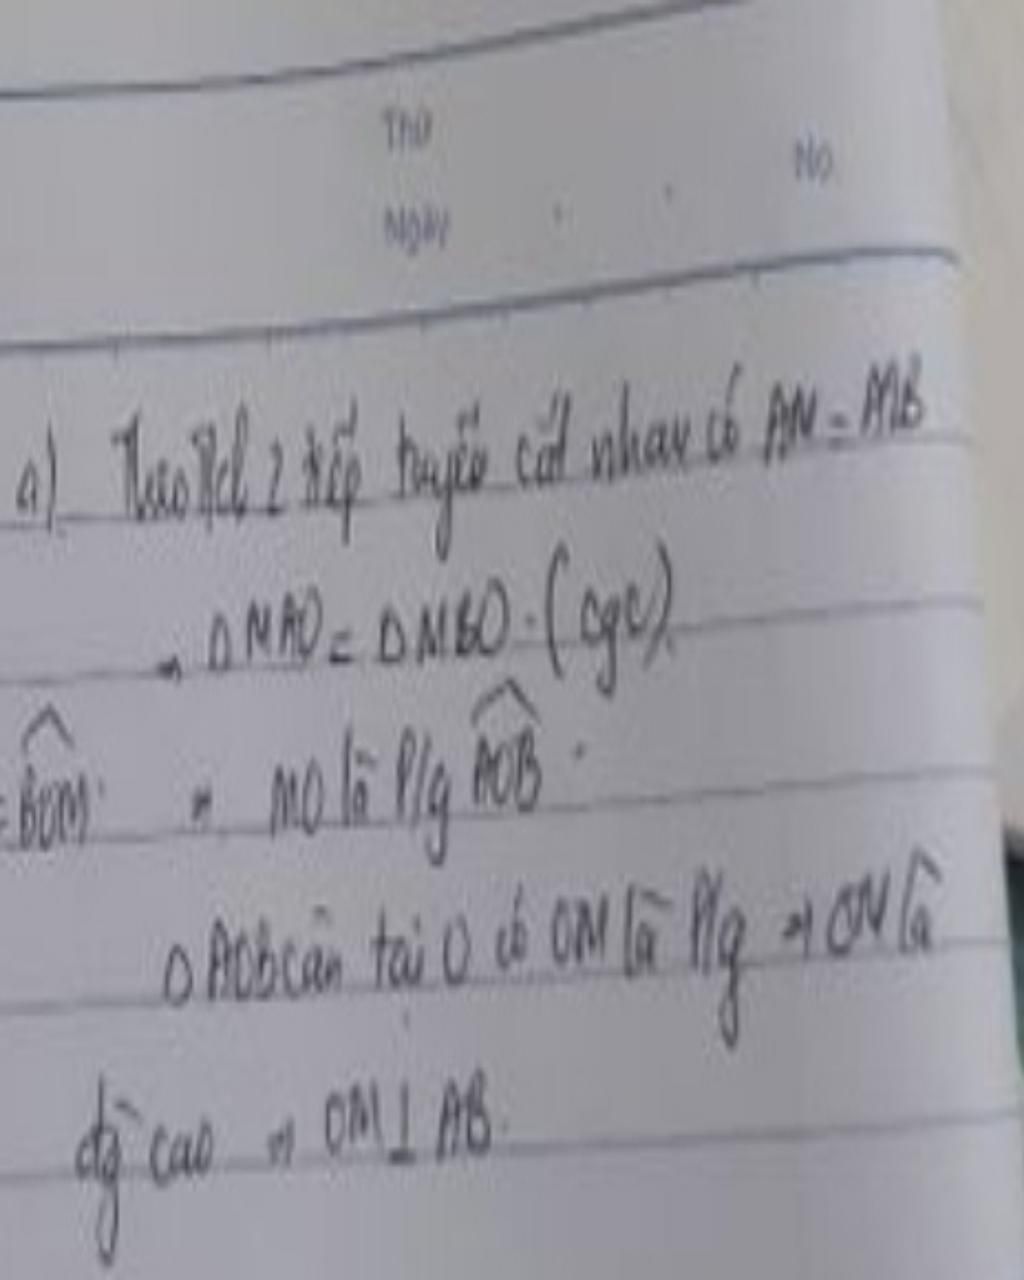 Thứ
No.
Ngày
a) Theo t/c 2 tiếp tuyến cắt nhau có AM = MB
→ Δ MAO = Δ MBO. (cgc).
= BOM̂ ⇒ MO là P/g AOB̂.
Δ AOB cân tại O có OM là P/g ⇒ OM là
đg cao ⇒ OM ⊥ AB.